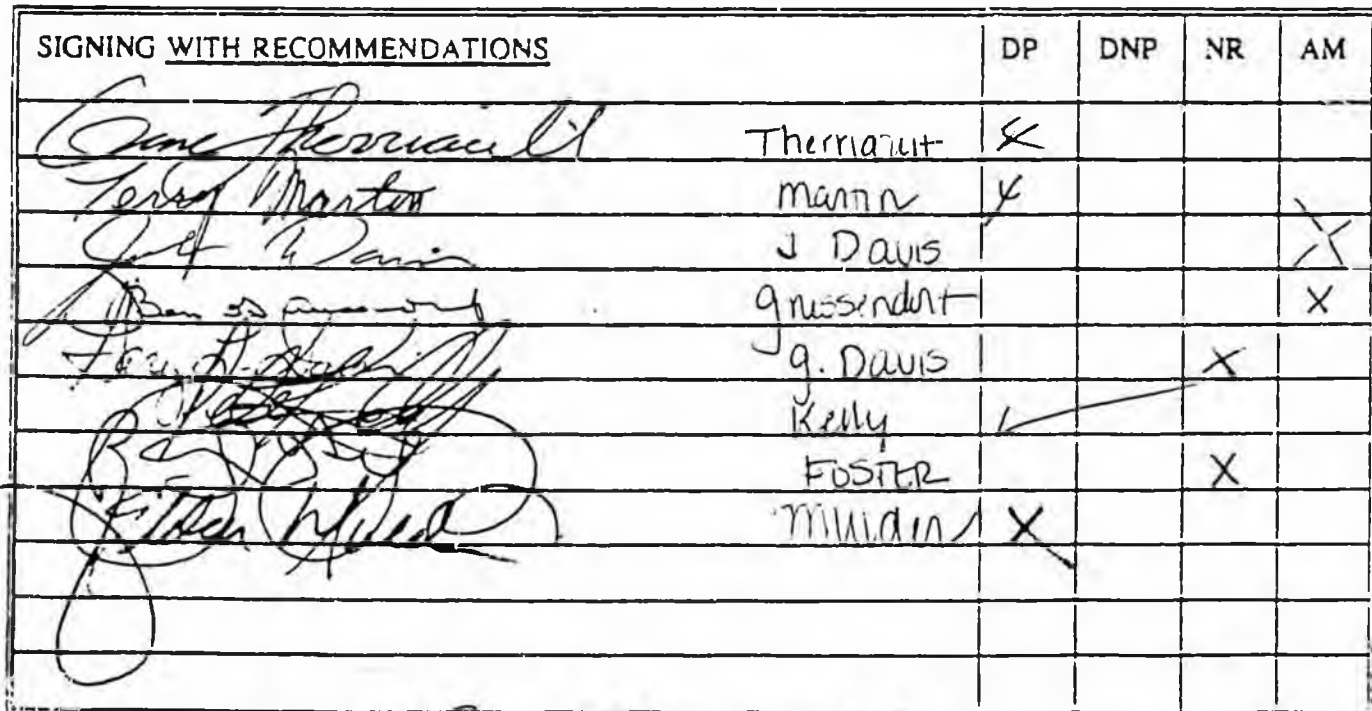 SIGNING WITH RECOMMENDATIONS DP DNP NR AM
Gene Therriault Therriault X
Terry Martin Martin X
J Davis X
Grussendorf X
G. Davis X
Kelly
FOSTER X
Mulder X